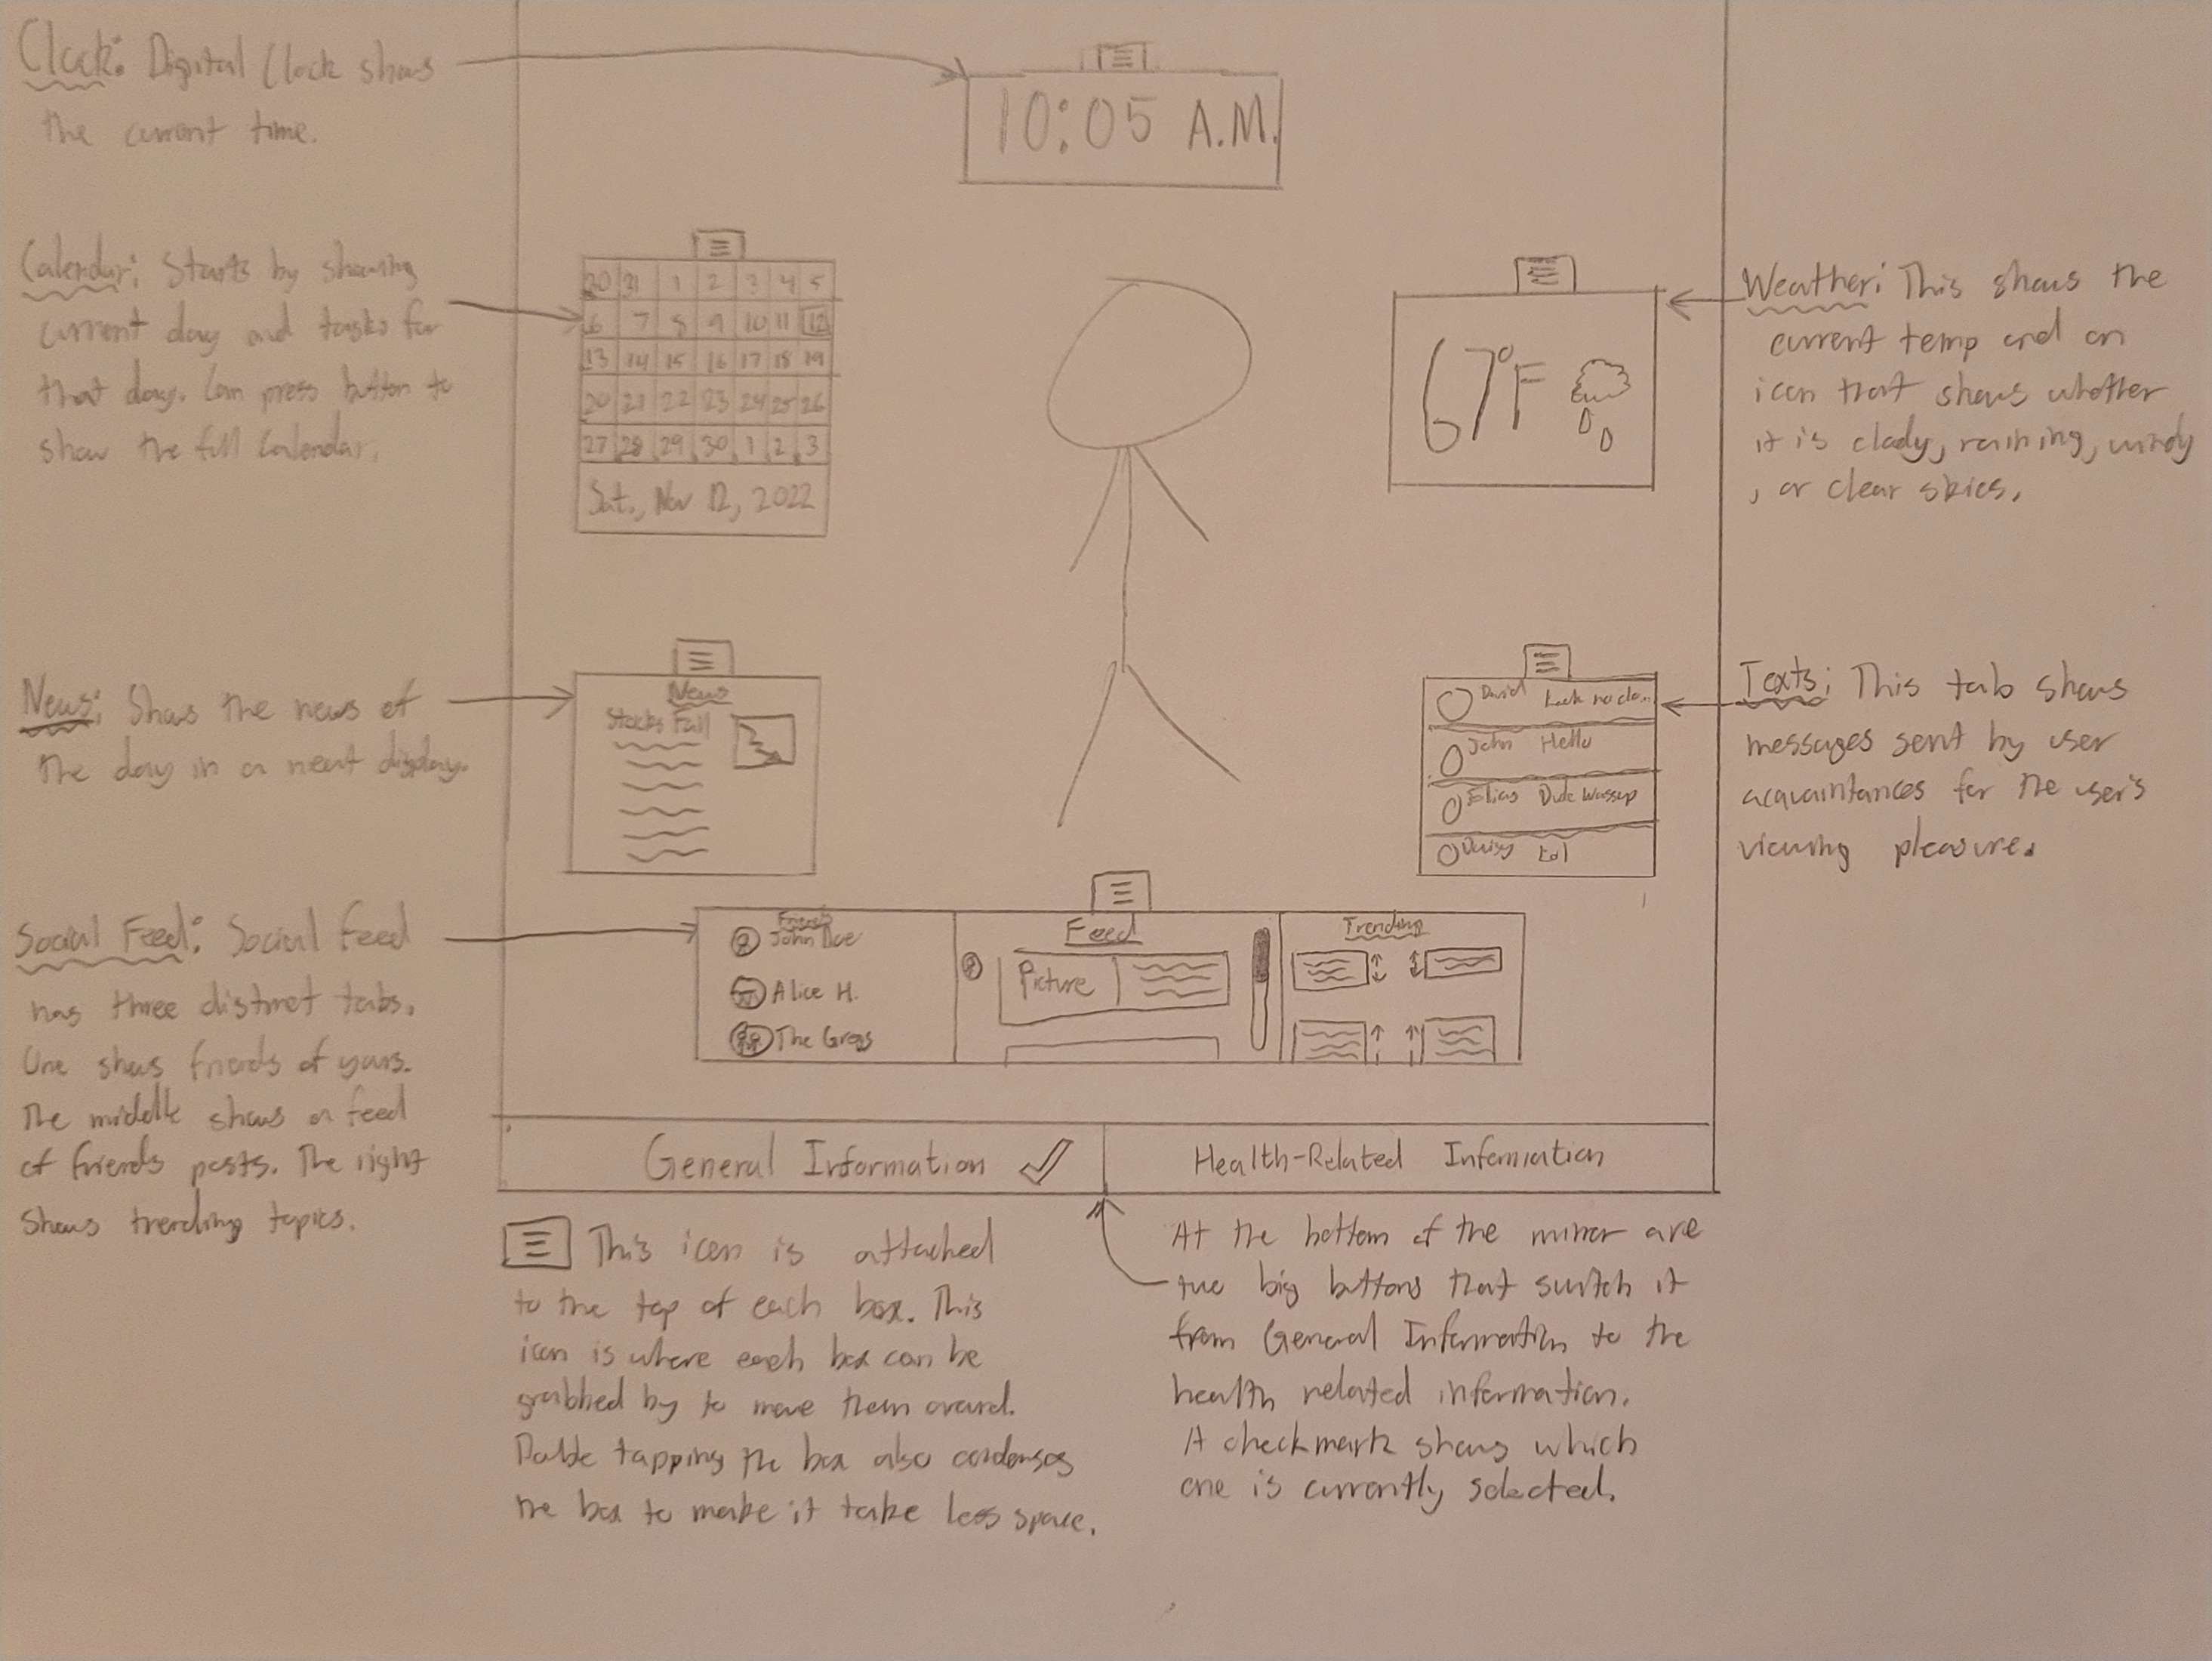 Clock: Digital Clock shows
the current time.
10:05 A.M.
Calendar: Starts by showing
current day and tasks for
that day. Can press button to
show the full Calendar.
30 31 1 2 3 4 5
6 7 8 9 10 11 12
13 14 15 16 17 18 19
20 21 22 23 24 25 26
27 28 29 30 1 2 3
Sat., Nov 12, 2022
67°F
Weather: This shows the
current temp and an
icon that shows whether
it is clady, raining, windy
, or clear skies.
News: Shows the news of
the day in a neat display.
News
Stocks Fall
David
John Hello
Elias Dude Wassup
Daisy Lol
Texts: This tab shows
messages sent by user
acquaintances for the user's
viewing pleasure.
Social Feed: Social Feed
has three distinct tabs.
One shows friends of yours.
The middle shows a feed
of friends posts. The right
shows trending topics.
Friends
John Doe
Alice H.
The Gregs
Feed
Picture
Trending
General Information
Health-Related Information
This icon is attached
to the top of each box. This
icon is where each box can be
grabbed by to move them around.
Double tapping the box also condenses
the box to make it take less space.
At the bottom of the mirror are
two big buttons that switch it
from General Information to the
health related information.
A checkmark shows which
one is currently selected.